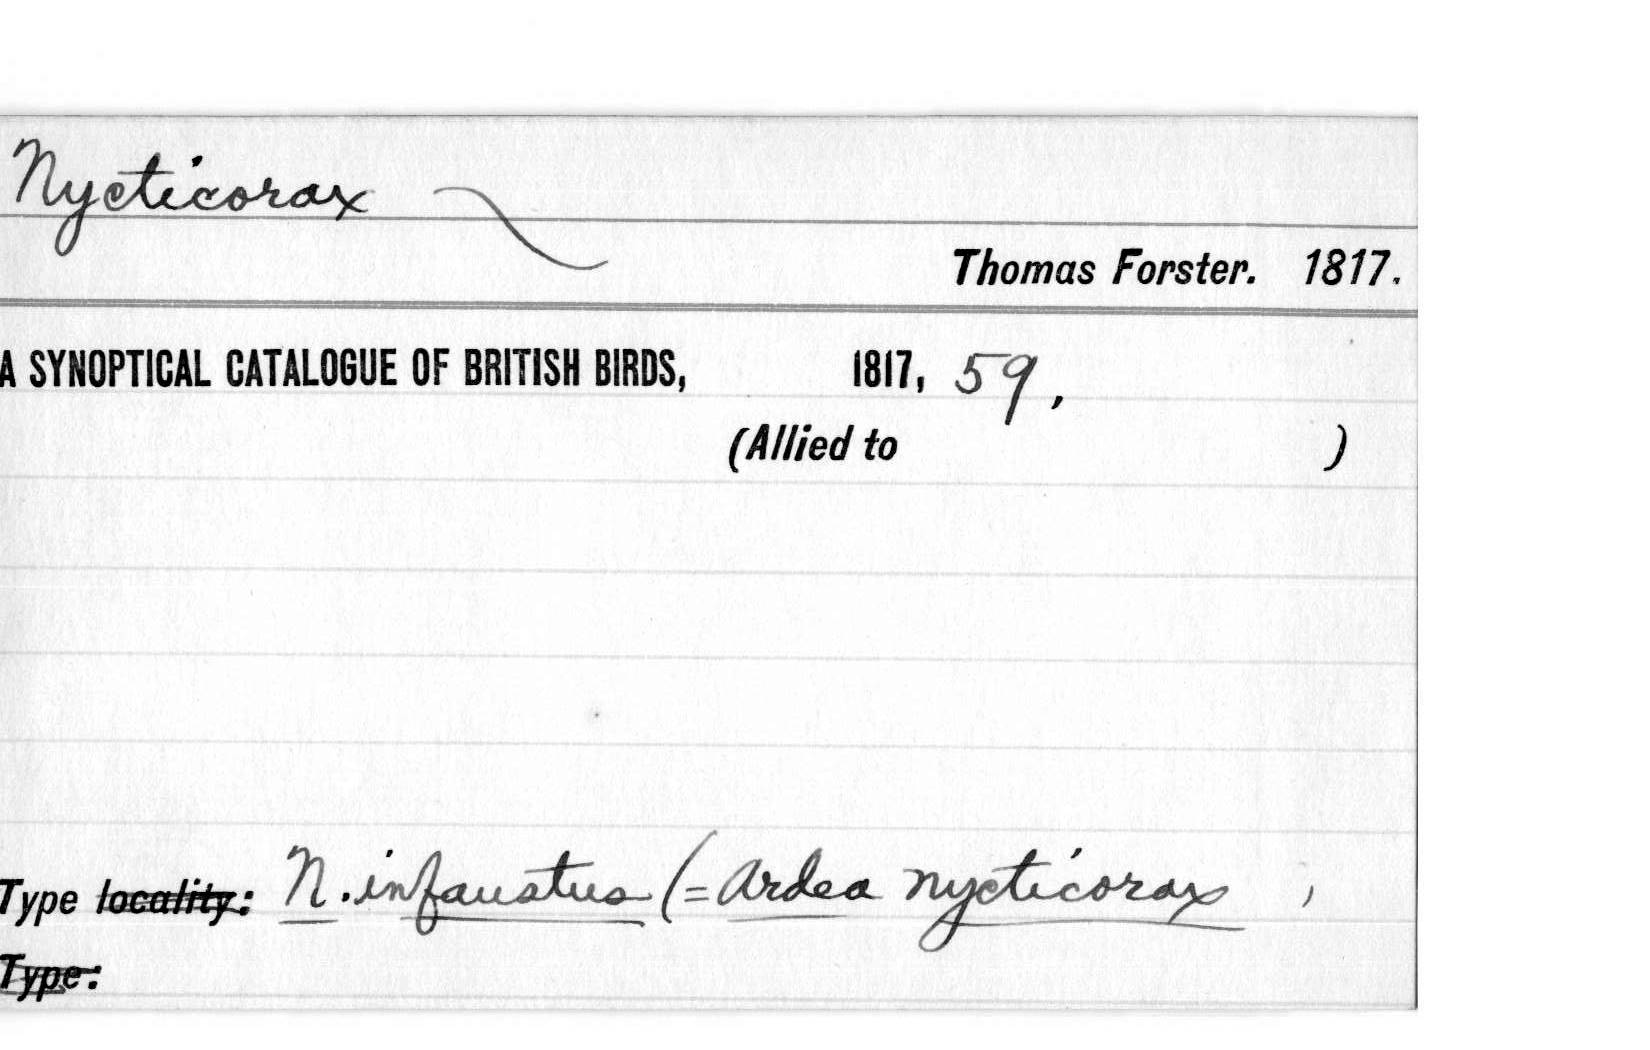 Nycticorax
Thomas Forster. 1817.
A SYNOPTICAL CATALOGUE OF BRITISH BIRDS, 1817, 59,
(Allied to )
Type locality: N. infaustus (= Ardea nycticorax )
Type: